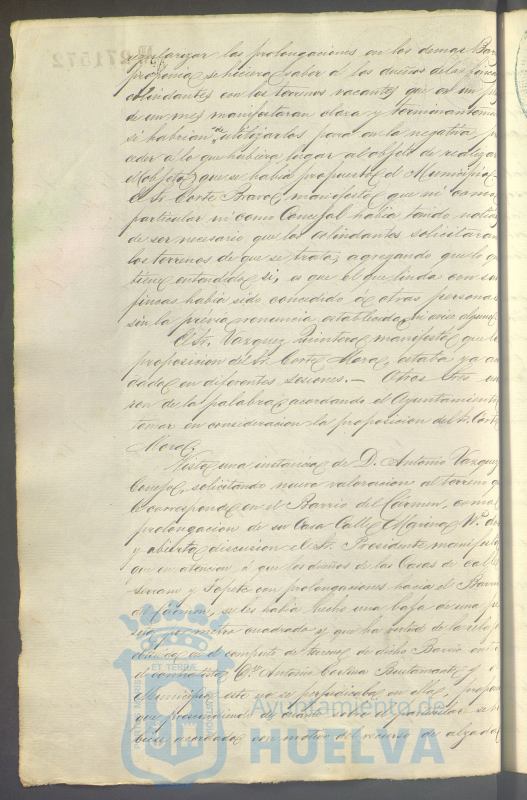 las prolongaciones en los demas
proponia se hiciera saber á los dueños de las fincas
colindantes con los terrenos vacantes que en un
de un mes manifestaran clara y terminantemente
si habrian de utilizarlos para en la negativa
ceder á lo que hubiera lugar al objeto de realizar
el objeto que se habia propuesto el Municipio
El Sr. Corte Bravo, manifestó que ni como
particular ni como Concejal habia tenido noticia
de ser necesario que los colindantes solicitaran
los terrenos de que se trata; agregando que lo q
tiene entendido si, es que el que linda con sus
fincas habia sido concedido á otras personas
sin la previa renuncia establecida, ni aviso alguno.
El Sr. Vazquez Quintero manifestó que la
proposicion del Sr. Corte Mora, estaba ya
en diferentes sesiones.— Otros Sres.
de la palabra, acordando el Ayuntamiento
tomar en consideracion la proposicion del Sr. Corte
Mora.
Vista una instancia de D. Antonio Vazquez
solicitando nueva valoracion al terreno q
le corresponde en el Barrio del Carmen, como
prolongacion de su Casa Calle Marina Nº
y abierta discusion el Sr. Presidente, manifestó
que en atencion á que los dueños de las Casas de calle
y Topete con prolongaciones hacia el Barrio
del Carmen, se les habia hecho una baja de una
metro cuadrado y que ha virtud de
en el computo de terrenos de dicho Barrio
el contratista Dn. Antonio Bustamante y
Municipio, este no se perjudicaba en ello,
que prescindiendo de cuanto sobre el particular se
acordado con motivo del recurso de alzada
Nº 271572
ET TERRAE
Ayuntamiento de
HUELVA